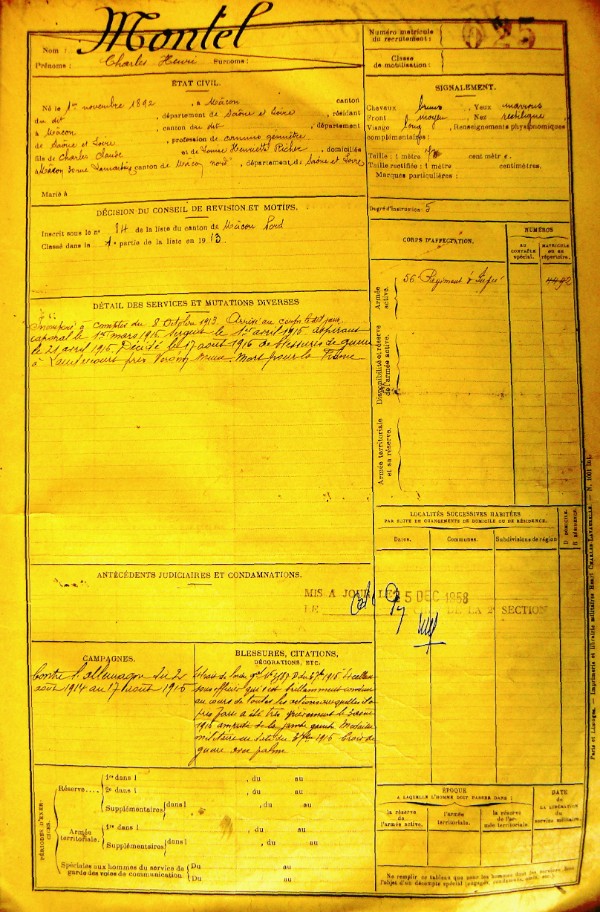 Nom :
Montel
Prénoms : Charles Henri Surnoms :
Numéro matricule
du recrutement :
025
Classe
de mobilisation :
ÉTAT CIVIL.
Né le 1er novembre 1892, à Mâcon canton
du dit, département de Saône et Loire, résidant
à Mâcon, canton du dit, département
de Saône et Loire, profession de commis géomètre
fils de Charles Claude et de Louise Henriette Picher, domiciliés
à Mâcon canton de Mâcon nord, département de Saône et Loire
Marié à
SIGNALEMENT.
Cheveux bruns, Yeux marrons
Front moyen, Nez rectiligne
Visage long, Renseignements physionomiques
complémentaires :
Taille : 1 mètre centimètres.
Taille rectifiée : 1 mètre centimètres.
Marques particulières :
Degré d'instruction : 5
DÉCISION DU CONSEIL DE REVISION ET MOTIFS.
Inscrit sous le n° 84 de la liste du canton de Mâcon Nord
Classé dans la 1e partie de la liste en 1913.
CORPS D'AFFECTATION.
NUMÉROS
au
contrôle
spécial.
matricule
ou au
répertoire.
Armée
active.
56e Régiment d'Infie
Disponibilité et réserve
de l'armée active.
Armée territoriale
et sa réserve.
DÉTAIL DES SERVICES ET MUTATIONS DIVERSES
Incorporé à compter du 8 Octobre 1913. Arrivé au corps le dit jour
caporal le 15 mars 1915 Sergent le 1er avril 1915 aspirant
le 21 avril 1916. Décédé le 17 août 1916 de blessures de guerre
à près Mort pour la France
LOCALITÉS SUCCESSIVES HABITÉES
PAR SUITE DE CHANGEMENTS DE DOMICILE OU DE RÉSIDENCE.
Dates.
Communes.
Subdivisions de région
D. DOMICILE.
R. RÉSIDENCE.
ANTÉCÉDENTS JUDICIAIRES ET CONDAMNATIONS.
MIS A JOUR LE 5 DEC 1958
LE DE LA 2e SECTION
CAMPAGNES.
Contre l'allemagne du 2
août 1914 au 17 août 1916
BLESSURES, CITATIONS,
DÉCORATIONS, ETC.
Extrait de 1916 Excellent
sous officier qui s'est brillamment conduit
au cours de toutes les actions auxquelles il a
pris part a été très grièvement blessé
1916 amputé de la jambe gauche Médaille
militaire 1916 Croix de
guerre avec palme
PÉRIODES D'EXERCICES.
Réserve....
1re dans l , du au
2e dans l , du au
Supplémentaires dans l , du au
, du au
Armée
territoriale.
1re dans l , du au
Supplémentaires dans l , du au
, du au
Spéciales aux hommes du service de
garde des voies de communication.
Du au
Du au
ÉPOQUE
A LAQUELLE L'HOMME DOIT PASSER DANS :
la réserve
de l'armée active.
l'armée
territoriale.
la réserve
de l'ar-
mée territoriale.
DATE
DE LA LIBÉRATION
du
service militaire.
Ne remplir ce tableau que pour les hommes dont les services font
l'objet d'un décompte spécial
Paris et Limoges. — Imprimerie et librairie militaires Henri CHARLES-LAVAUZELLE. — N. 1001 bis.